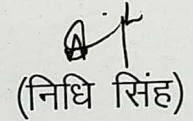 (निधि सिंह)